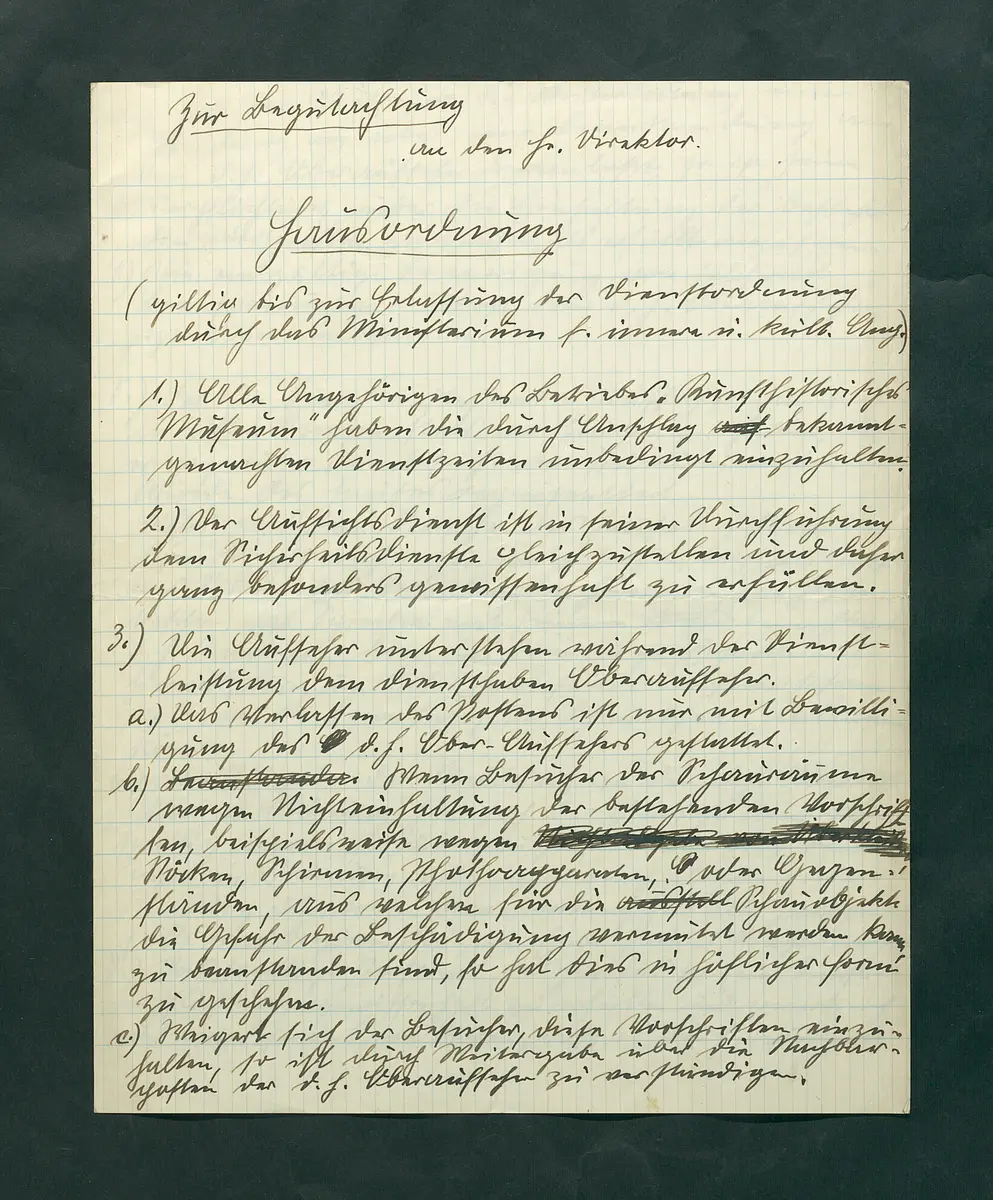 Zur Begutachtung
an den Hr. Direktor.
Hausordnung
(giltig bis zur Erlassung der Dienstordnung
durch das Ministerium f. innere u. kult. Ang.)
1.) Alle Angehörigen des Betriebes „Kunsthistorisches
Museum" haben die durch Anschlag auf bekannt-
gemachten Dienstzeiten unbedingt einzuhalten.
2.) Der Aufsichtsdienst ist in seiner Durchführung
dem Sicherheitsdienste gleichzustellen und daher
ganz besonders gewissenhaft zu erfüllen.
3.) Die Aufseher unterstehen während der Dienst-
leistung dem diensthaben Oberaufseher.
a.) Das Verlassen des Postens ist nur mit Bewilli-
gung des d. h. Ober-Aufsehers gestattet.
b.) Wenn Besucher der Schauräume
wegen Nichteinhaltung der bestehenden Vorschrif-
ten, beispielsweise wegen
Stöcken, Schirmen, Photoapparaten, oder Gegen-
ständen, aus welchen für die ausstell Schauobjekte
die Gefahr der Beschädigung vermutet werden kann,
zu beanstanden sind, so hat dies in höflicher Form
zu geschehen.
c.) Weigert sich der Besucher, diese Vorschriften einzu-
halten, so ist durch Weitergabe über die Nachbar-
posten der d. h. Oberaufseher zu verständigen.